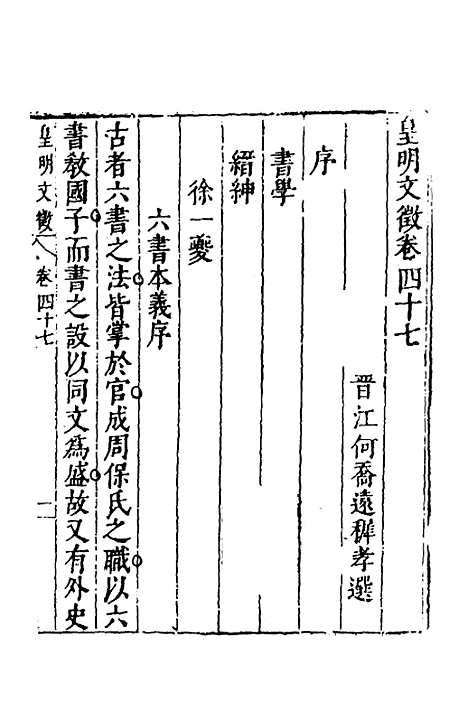 皇明文徵卷四十七
晉江何喬遠穉孝選
序
書學
縉紳
徐一夔
六書本義序
古者六書之法皆掌於官成周保氏之職以六
書敎國子而書之設以同文爲盛故又有外史
皇明文徵 卷四十七 一